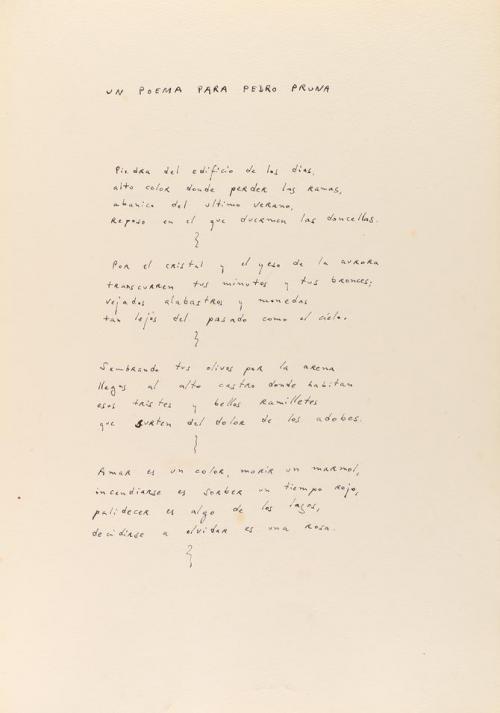 UN POEMA PARA PEDRO PRUNA
Piedra del edificio de los dias,
alto color donde perder las ramas,
abanico del ultimo verano,
reposo en el que duermen las doncellas.
Por el cristal y el yeso de la aurora
transcurren tus minutos y tus bronces;
vejados alabastros y monedas
tan lejos del pasado como el cielo.
Sembrando tus olivos por la arena
llegas al alto castro donde habitan
esos tristes y bellos ramilletes
que surten del dolor de los adobes.
Amar es un color, morir un marmol,
incendiarse es sorber un tiempo rojo,
palidecer es algo de los lagos,
decidirse a olvidar es una rosa.